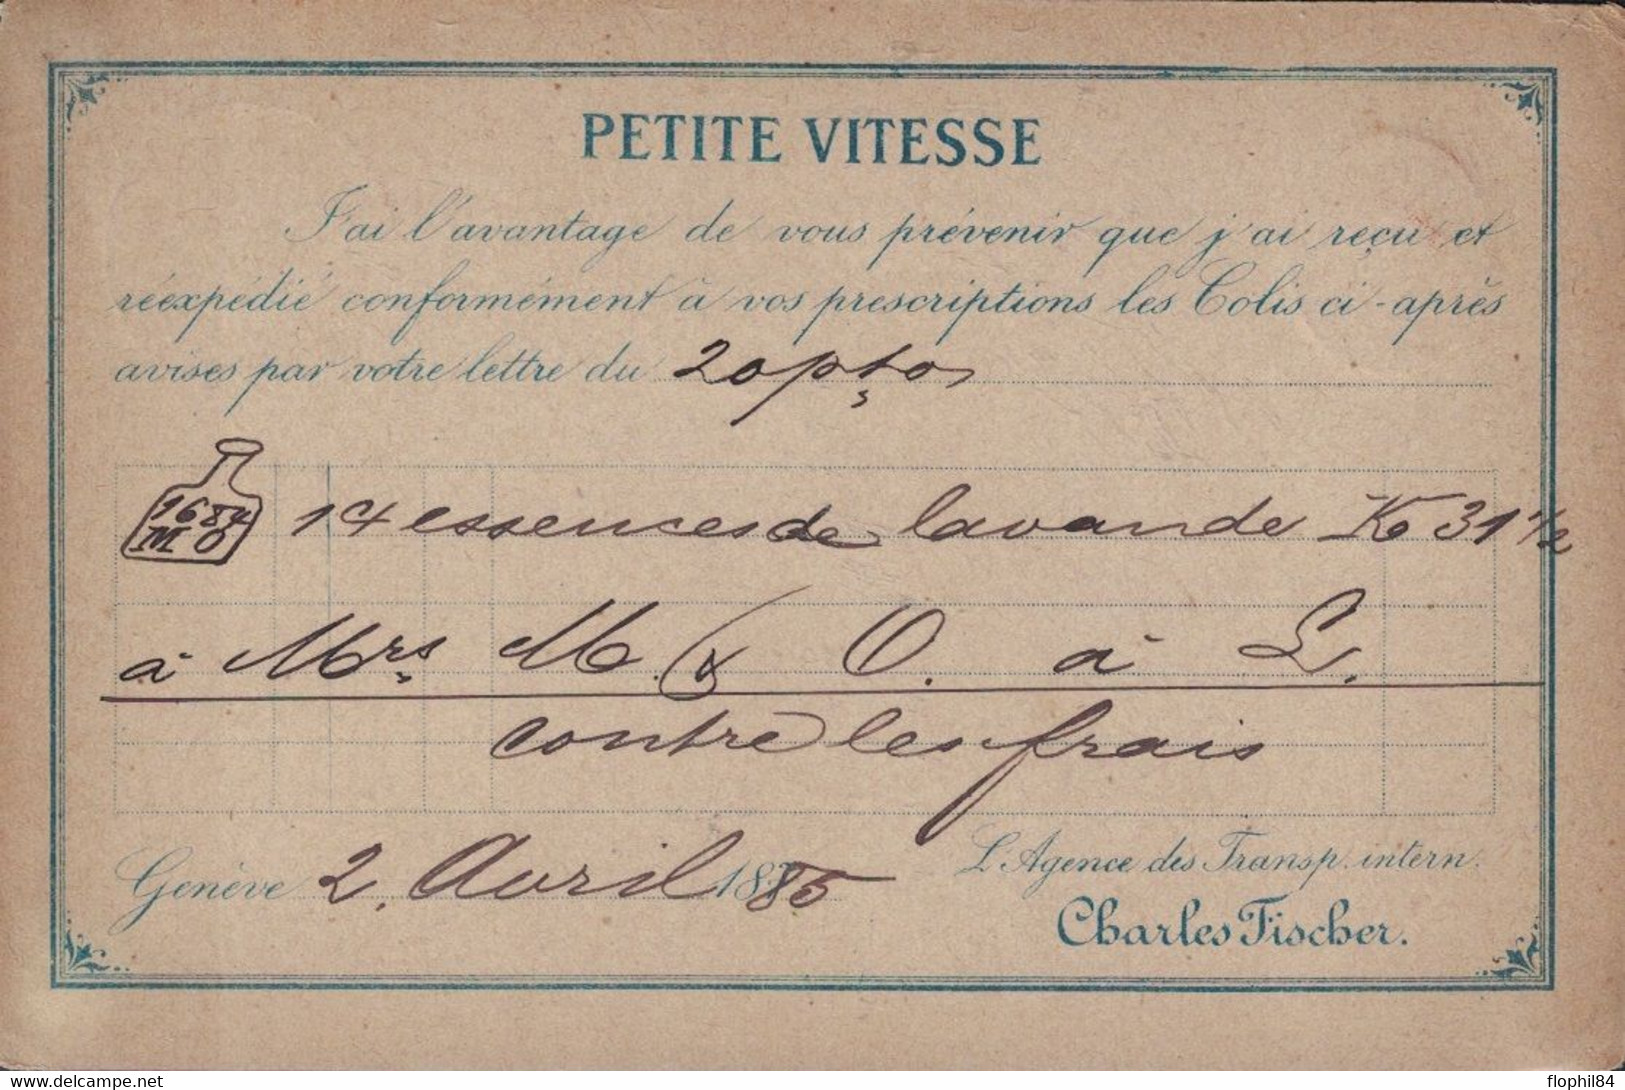 PETITE VITESSE
J'ai l'avantage de vous prévenir que j'ai reçu et
réexpédié conformément à vos prescriptions les Colis ci-après
avisés par votre lettre du 20 pto
1684
M O
essences de lavande Ko 31 1/2
à Mrs M. & O. à L.
contre les frais
Genève 2. Avril 1885
L'Agence des Transp. intern.
Charles Fischer.
delcampe.net
flophil84